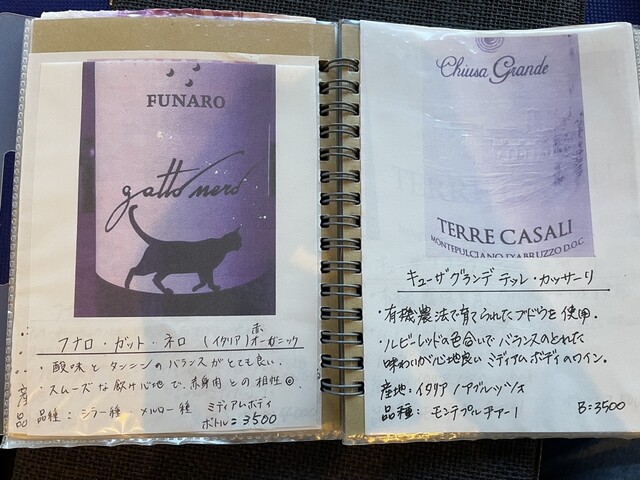 FUNARO
gatto nero
フナロ・ガット・ネロ (イタリア) 赤 オーガニック
・酸味とタンニンのバランスがとても良い。
・スムーズな飲け心地で、赤身肉との相性◎
品種：シラー種・メルロー種 ミディアムボディ
ボトル：3500
産
品
Chiusa Grande
TERRE CASALI
MONTEPULCIANO D'ABRUZZO D.O.C
キューザグランデ テッレ・カッサーリ
・有機農法で育てられたブドウを使用。
・ルビーレッドの色合いでバランスのとれた
味わいが心地良いミディアムボディのワイン。
産地：イタリア／アブルッツォ
品種：モンテプルチアーノ B=3500